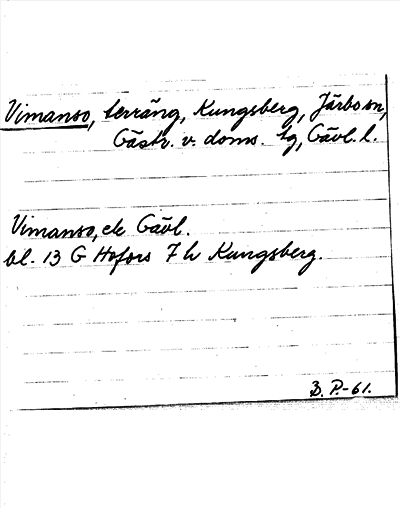 Vimanso, terräng, Kungsberg, Järbo sn,
Gästr. v. doms. tg, Gävl. l.
Vimanso, ek Gävl.
bl. 13 G Hofors 7 h Kungsberg.
B. P.-61.